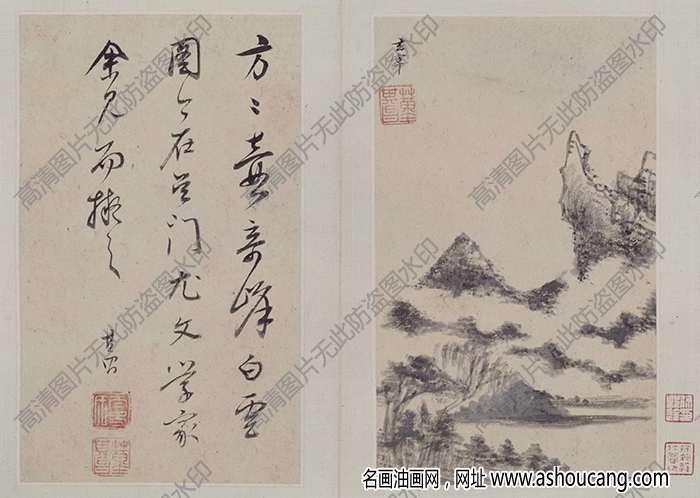 方〻壺奇峰白雲
圖今在吳門尤文學家
余見而擬之
其昌
玄宰
高清图片无此防盗图水印
名画油画网，网址 www.ashoucang.com